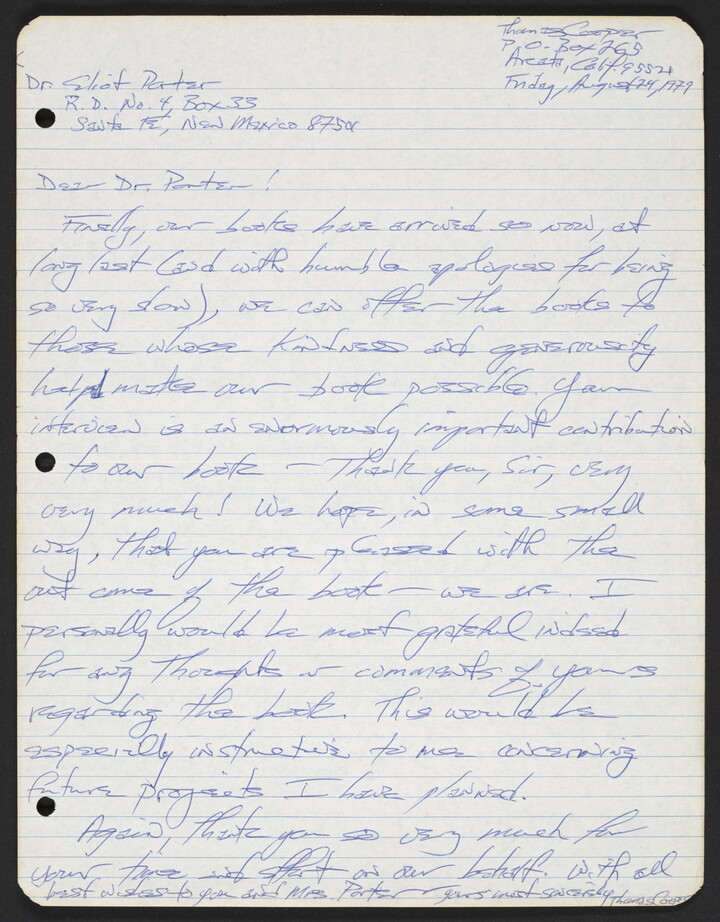 Thomas Cooper
P.O. Box 265
Arcata, Calif. 95521
Friday, August 24, 1979
Dr. Eliot Porter
R.D. No. 4, Box 33
Santa Fe, New Mexico 87501
Dear Dr. Porter!
Finally, our books have arrived so now, at
long last (and with humble apologies for being
so very slow), we can offer the books to
those whose kindness and generousity
helpd make our book possible. Your
interview is an enormously important contribution
to our book – Thank you, Sir, very
very much! We hope, in some small
way, that you are pleased with the
out come of the book – we are. I
personally would be most grateful indeed
for any thoughts or comments of yours
regarding the book. This would be
especially instructive to me concerning
future projects I have planned.
Again, thank you so very much for
your time and effort on our behalf. With all
best wishes to you and Mrs. Porter – yours most sincerely, Thomas Cooper